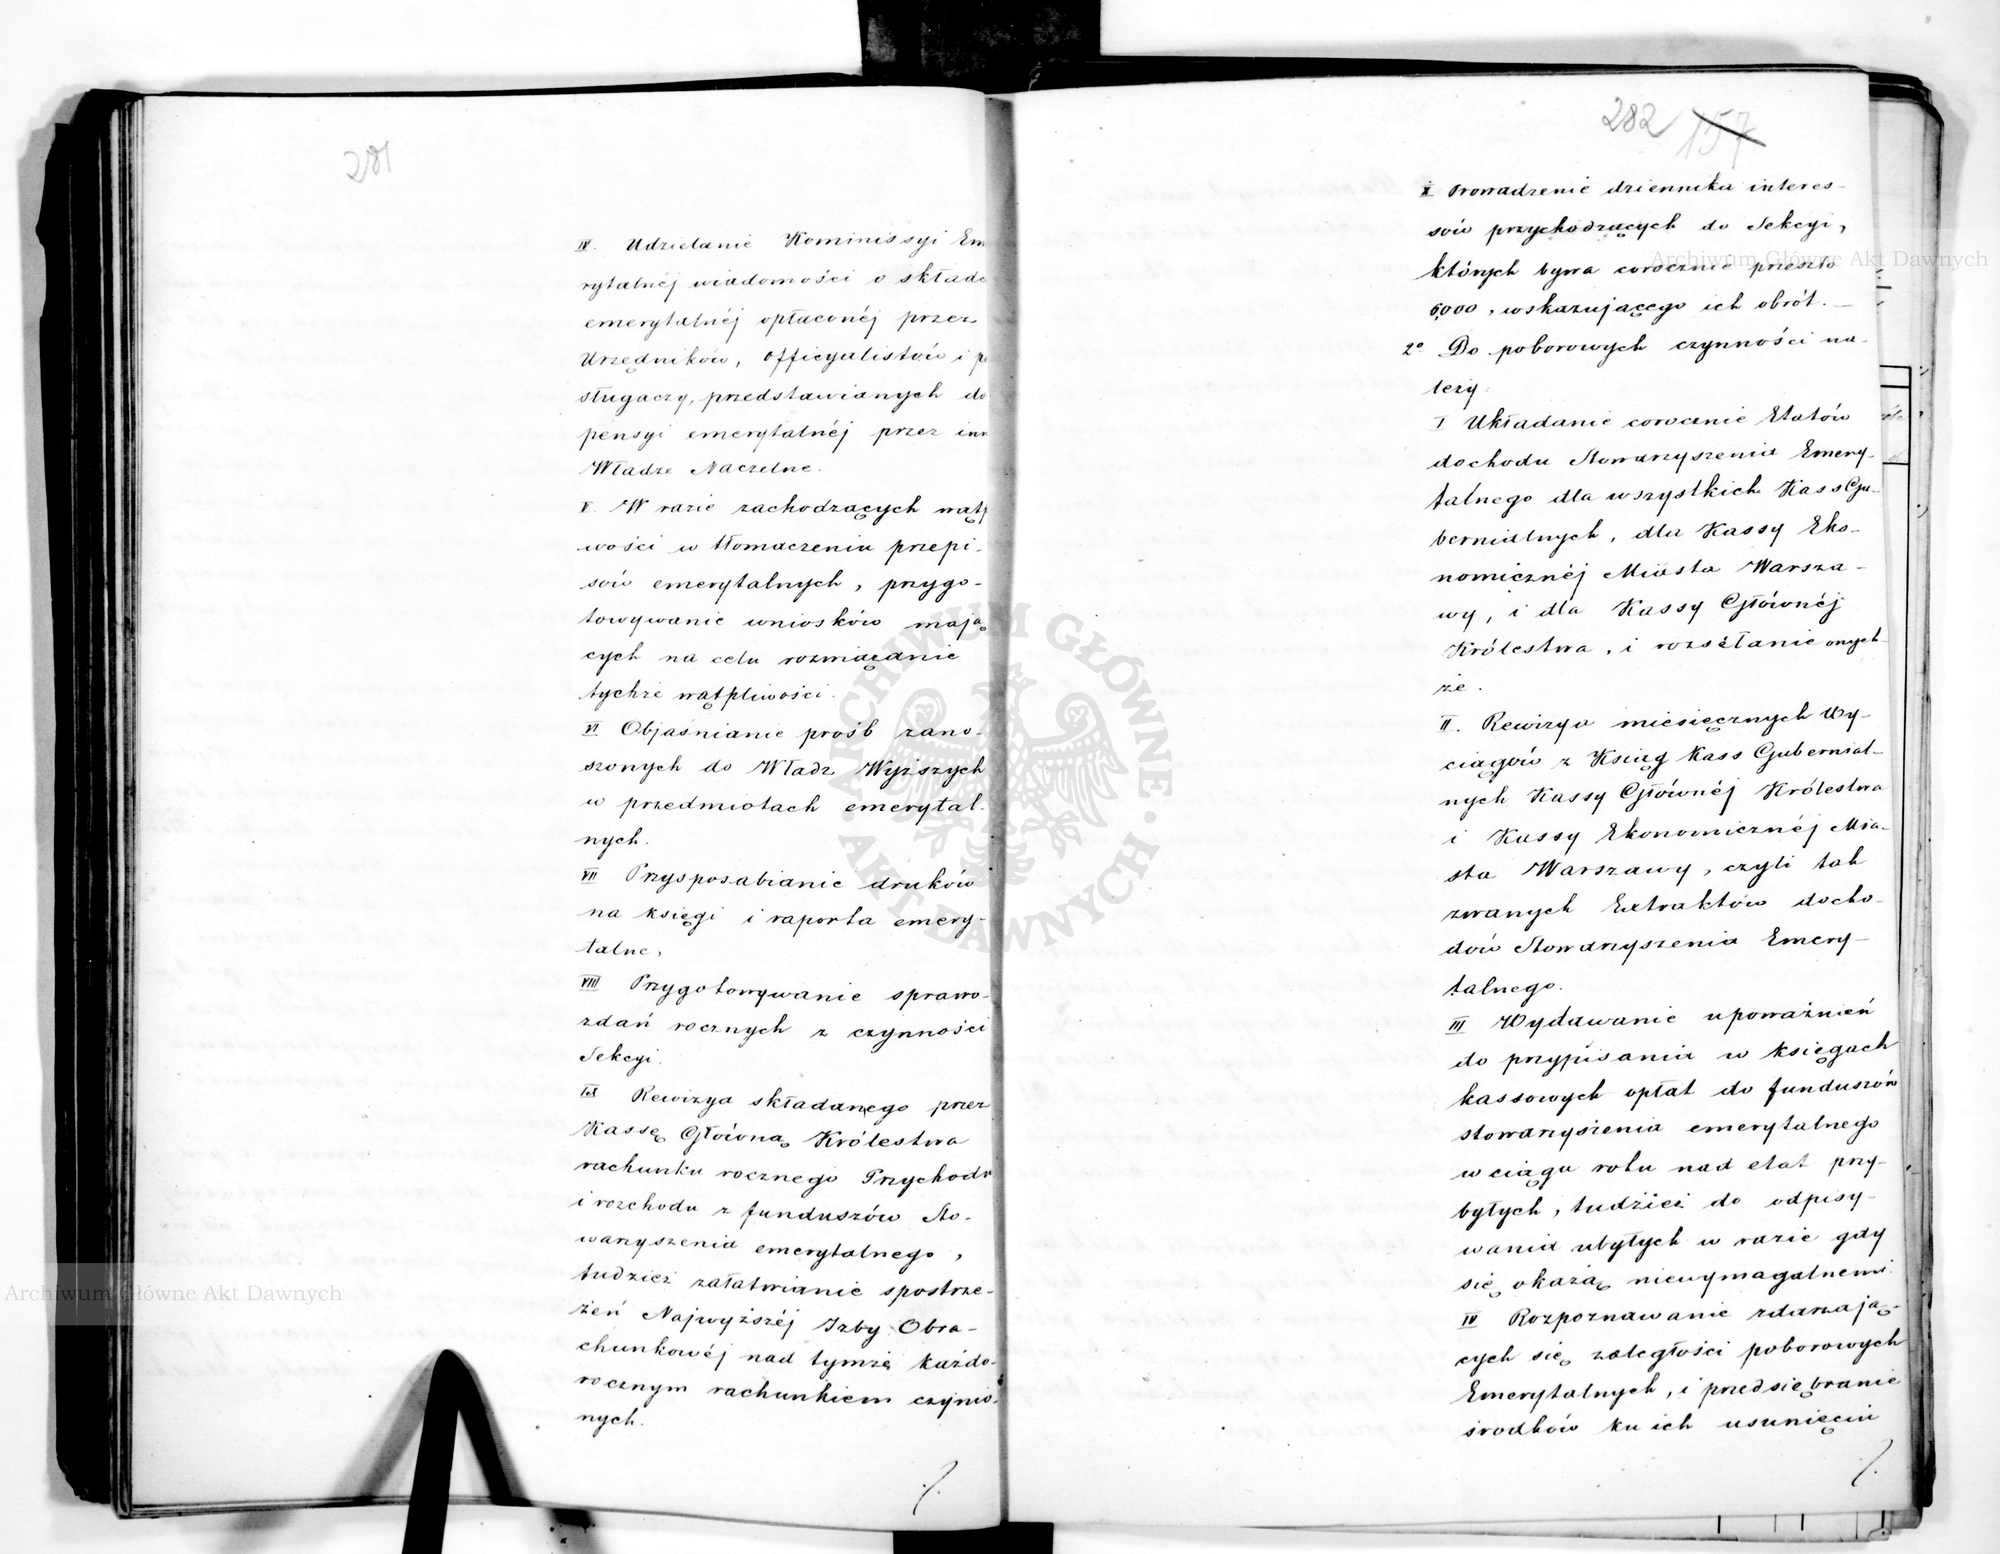 281
IV. Udzielanie Kommissyi Em
rytalnéj wiadomości o składc
emerytalnéj opłaconéj przez
Urzędników, officyalistów i p
sługaczy, przedstawianych do
pensyi emerytalnéj przez inn
Władze Naczelne.
V. W razie zachodzących wątp
wości w tłomaczeniu przepi-
sów emerytalnych, przygo-
towywanie wniosków mają
cych na celu rozwiązanie
tychże wątpliwości.
VI Objaśnianie prośb zano-
szonych do Władz Wyższych
w przedmiotach emerytal-
nych.
VII Przysposabianie druków
na księgi i raporta emery-
talne,
VIII Przygotowywanie sprawo-
zdań rocznych z czynności
Sekcyi.
IX Rewizya składanego przez
Kassę Główną Królestwa
rachunku rocznego Przychodu
i rozchodu z funduszów Sto-
warzyszenia emerytalnego,
tudzież załatwianie spostrze-
żeń Najwyższéj Izby Obra-
chunkowéj nad tymże każdo-
rocznym rachunkiem czynio-
nych.
./.
282 157
X Prowadzenie dziennika interes-
sów przychodzących do Sekcyi,
których bywa corocznie przeszło
6,000, wskazującego ich obrót. —
2° Do poborowych czynności na-
leży:
I Układanie corocznie Etatów
dochodu Stowarzyszenia Emery-
talnego dla wszystkich Kass Gu-
bernialnych, dla Kassy Eko-
nomicznéj Miasta Warsza-
wy, i dla Kassy Głównéj
Królestwa, i rozsełanie onych-
że.
II. Rewizya miesięcznych Wy-
ciągów z Ksiąg Kass Gubernial-
nych Kassy Głównéj Królestwa
i Kassy Ekonomicznéj Mia-
sta Warszawy, czyli tak
zwanych Extraktów docho-
dów Stowarzyszenia Emery-
talnego.
III Wydawanie upoważnień
do przypisania w księgach
kassowych opłat do funduszów
stowarzyszenia emerytalnego
w ciągu roku nad etat przy-
byłych, tudzież do odpisy-
wania ubyłych w razie gdy
się okażą niewymagalnemi.
IV Rozpoznawanie zdarzają-
cych się zaległości poborowych
Emerytalnych, i przedsiębranie
środków ku ich usunięciu
./.
ARCHIWUM GŁÓWNE AKT DAWNYCH
Archiwum Główne Akt Dawnych
Archiwum Główne Akt Dawnych